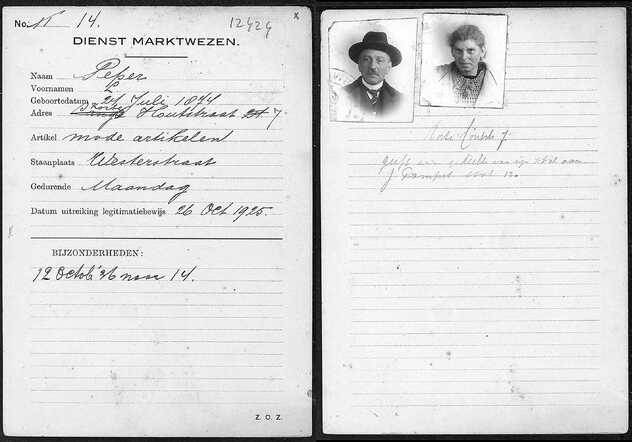 No. 11 14. 12424 x
DIENST MARKTWEZEN.
Naam Peper
Voornamen L
Geboortedatum 24 Juli 1874
Adres Lange Korte Houtstraat 27 7
Artikel mode artikelen
Staanplaats Westerstraat
Gedurende Maandag
Datum uitreiking legitimatiebewijs 26 Oct 1925.
BIJZONDERHEDEN:
12 Octob '26 naar 14.
Z. O. Z.
Korte Houtstr 7
geeft een gedeelte van zijn
J